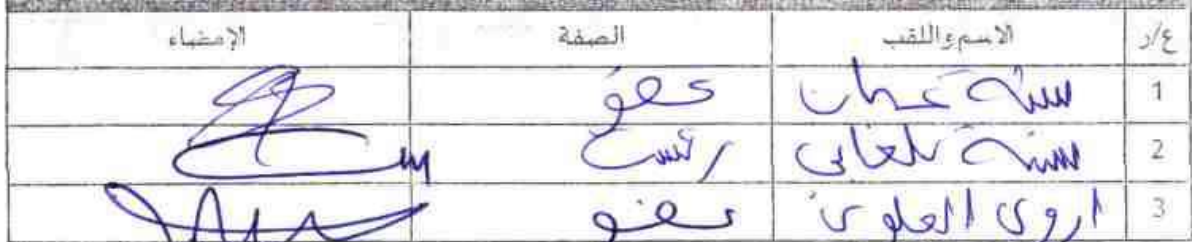 ع/ر الاسم واللقب الصفة الإمضاء
1 سنية عضو
2 سنية رئيسة
3 اروى العلوي عضو